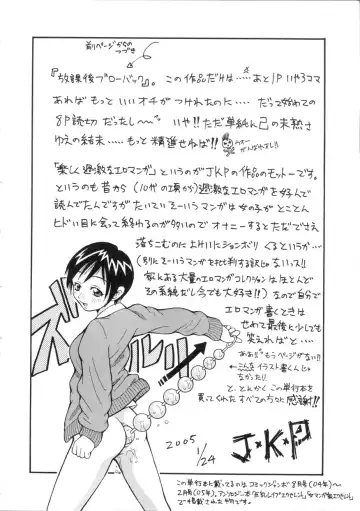 前ページからの
つづき
『放課後ブローバック』。この作品だけは……あと1P いや3コマ
あればもっといいオチがつけれたのに…… だって始めての
8P読切だったし〜〞 いや!! ただ単純に己の未熟さ
ゆえの結末……もっと精進せねば!!
がんばれよ!!
『楽しく過激なエロマンガ』というのがJKPの作品のモットーです。
というのも昔から(10代の頃から)過激なエロマンガを好んで
読んでたんですがたいてい そーいうマンガは女の子がとことん
ヒドい目に会って終わるのが多いのでオナニーするとただでさえ
落ちこむのに上げいにションボリくるというか…
(別にそーいうマンガを批判する訳じゃないっス!!
家にある大量のエロマンガコレクションはほとんど
その系統だし今でも大好き!!)なので自分で
エロマンガ書くときは
せめて最後に少しでも
笑えればと…
ああもうページがない!!
←こんなイラスト書くんじゃ
なかった!!
と、とにかくこの単行本を
買ってくれたすべての方々に感謝!!
ズズズ
ズルリ
2005
1/24
J・K・P
この単行本に載ってるのはコミックション8月号(04年)〜
2月号(05年)、アンソロジー本
で掲載されたやつです。